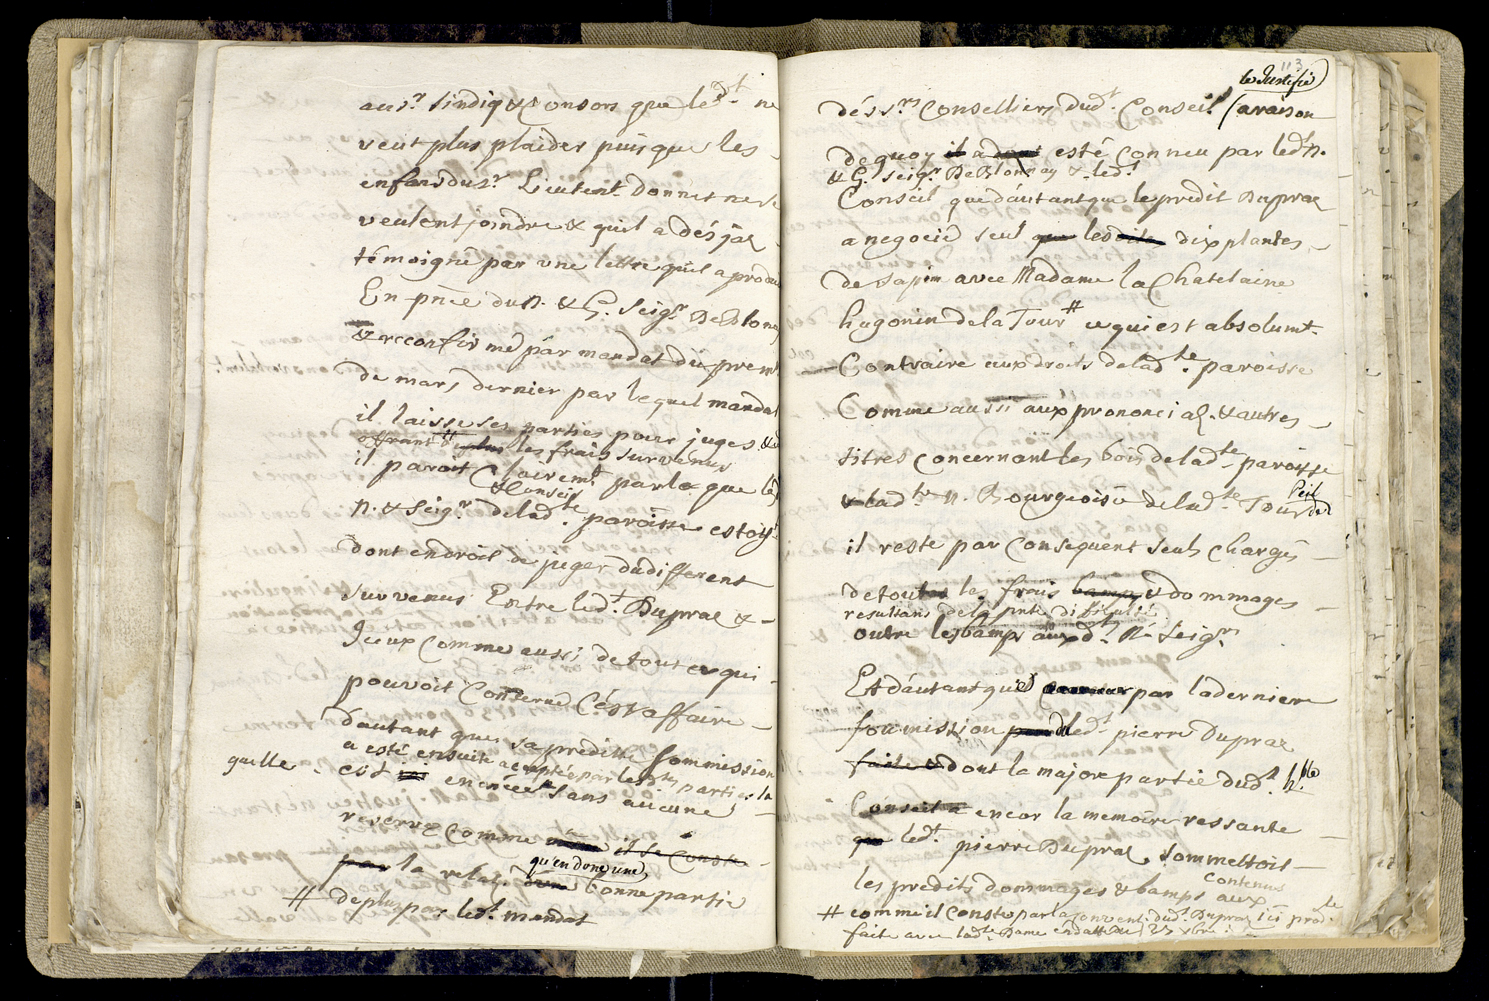 au sr. sindiq & Consors que led.t ne
veut plus plaider puis que les
enfans du sr. Lieutent. Donnet ne se
veulent joindre & quil a désjaz
témoigné par une lettre quil a produi
En pnce du n. & G. Seigr. DeBlonay
& reconfirmé par mandat du premi
de mars dernier par lequel mandat
il laisse ses parties pour juges &
offrant # plus les frais survenus
il paroit Clairemt. par la que les
& Conseil
n. & Seigr. de lad.te paroisse estoist
dont en droit de juger du different
survenus Entre led.t Dupraz & –
Iceux comme aussi de tout ce qui –
pouvoit Concerné Cést affaire –
dautant que sa preditte sommission
a esté ensuite acceptée par lesd.tes parties la
quelle
est en sans aucune
reserve comme il se Conste
qu'en donc une
par la bonne partie
# de plus par led.t mandat
113
le Justifié
dés srs Conselliers dud.t Conseil (a raison
de quoy il a esté Conneu par led. n.
& G. seigr. DeBlonnay & led.t
Conseil que dáutant que le predit Dupraz
a negocié seul que lesdits dix plantes
de sapin avec Madame la Chatelaine
hugonin de la Tour # ce qui est absolumt.
Contraire aux droits de lad.te paroisse
Comme aussi aux prononciaõ. & autres
titres concernant les bois de lad.te paroisse
& lad.te n. Bourgeoisie de lad.te Tour de Peil
il reste par Consequent seul chargé
de toutes les frais bamps & dommages
resultans de la pnte dificulté
outre les bamps aux d.ts Ns Seigrs
Et dáutant quil par la derniere
soumission led.t pierre Dupraz
faite & dont la major partie dud.t h.ble
Conseil a encor la memoire ressante
que led.t pierre Dupraz sommettoit
les predits dommages & bamps contenus
aux
# comme il conste par la Convent. dud.t Dupraz ici prod.te
faite avec lad.te Dame en datte du 23 xbre